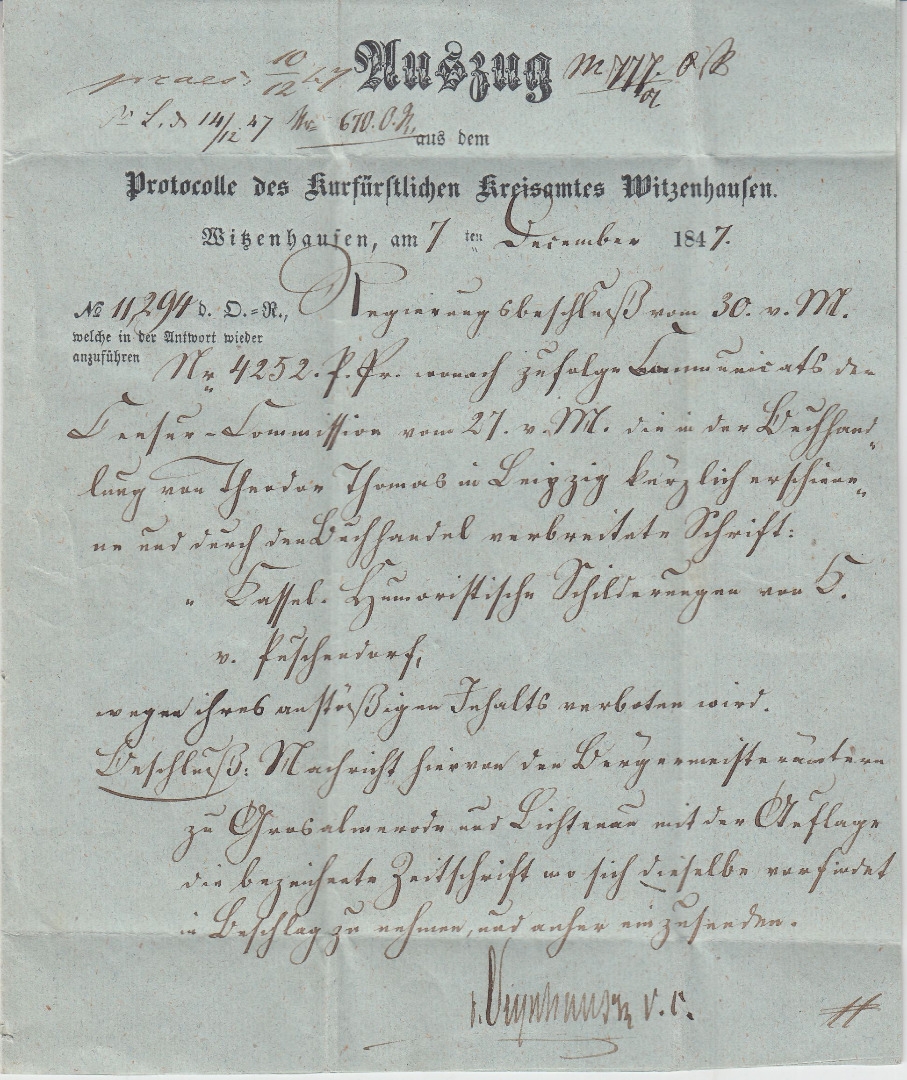 praes. 10/12 47 Auszug
14/12 47 Nr 670. O. R.
aus dem
Protocolle des Kurfürstlichen Kreisamtes Witzenhausen.
Witzenhausen, am 7 ten December 1847.
No 11,294 d. O.-R.,
welche in der Antwort wieder
anzuführen
Regierungsbeschluß vom 30. v. M.
Nr 4252. P. Pr. wonach zufolge Communicats der
Censur-Commission vom 27. v. M. die in der Buchhand„
lung von Theodor Thomas in Leipzig kürzlich erschiene„
ne und durch den Buchhandel verbreitete Schrift:
„Cassel. Humoristische Schilderungen von H.
v. Puschendorf,
wegen ihres anstößigen Inhalts verboten wird.
Beschluß: Nachricht hiervon den Bürgermeisterämtern
zu Grosalmerode und Lichtenau mit der Auflage
die bezeichnete Zeitschrift wo sich dieselbe vorfindet
in Beschlag zu nehmen, und anher einzusenden.
v. c.